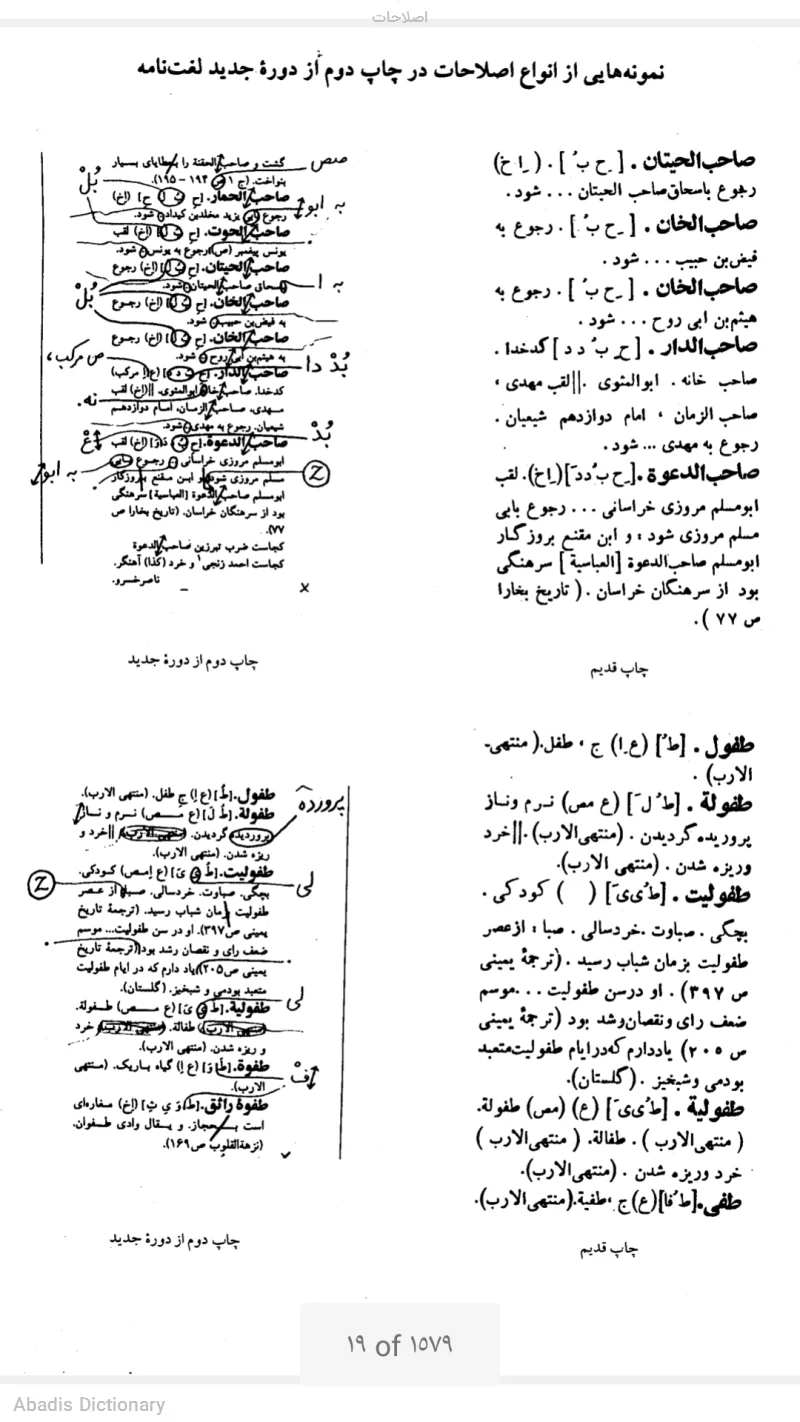 اصلاحات
نمونه‌هایی از انواع اصلاحات در چاپ دوم از دورهٔ جدید لغت‌نامه
صاحب‌الحیتان . [ حِ بُ ] . (اِخ)
رجوع باسحاق‌صاحب الحیتان ... شود .
صاحب‌الخان . [ حِ بُ ] . رجوع به
فیض‌بن حبیب ... شود .
صاحب‌الخان . [ حِ بُ ] . رجوع به
هیثم‌بن ابی روح ... شود .
صاحب‌الدار . [ حِ بُ د د ] کدخدا .
صاحب خانه . ابوالمثوی .||لقب مهدی ،
صاحب الزمان ، امام دوازدهم شیعیان .
رجوع به مهدی ... شود .
صاحب‌الدعوة .[حِ بُ‌ددَ](اِخ). لقب
ابومسلم مروزی خراسانی ... رجوع بابی
مسلم مروزی شود ؛ و ابن مقنع بروزگار
ابومسلم صاحب‌الدعوة [العباسیة ] سرهنگی
بود از سرهنگان خراسان . ( تاریخ بخارا
ص ۷۷ ) .
چاپ قدیم
گشت و صاحب‌الحقنة را بعطایای بسیار
بنواخت. (ج ۱ ص ۱۹۴ - ۱۹۵).
صاحب‌الحمار. [ح ح] (اخ)
رجوع یزید مخلدبن کیداد شود.
صاحب‌الحوت. (اخ) لقب
یونس پیغمبر (ص)رجوع به یونس شود.
صاحب‌الحیتان. (اخ) رجوع
اسحاق صاحب‌الحیتان شود.
صاحب‌الخان. (اخ) رجوع
به فیض‌بن حبیب شود.
صاحب‌الخان. (اخ) رجوع
به هیثم‌بن ابی روح شود.
صاحب‌الدار. (ع اِ مرکب)
کدخدا. صاحب خانه ابوالمثوی. ||(اخ) لقب
مهدی، صاحب‌الزمان، امام دوازدهم
شیعیان. رجوع به مهدی شود.
صاحب‌الدعوة. (اخ) لقب
ابومسلم مروزی خراسانی رجوع بابی
مسلم مروزی شود و ابن مقنع بروزگار
ابومسلم صاحب‌الدعوة [العباسیة] سرهنگی
بود از سرهنگان خراسان. (تاریخ بخارا ص
۷۷).
کجاست ضرب تبرزین صاحب‌الدعوة
کجاست احمد زنجی۱ و خرد (کذا) آهنگر.
ناصرخسرو.
صص
بُلْ
به ابو
به ا
بُلْ
بُدْ دا
ص مرکب،
نه.
بُدْ
به ابو
Z
چاپ دوم از دورهٔ جدید
طفول . [طُ] (ع اِ) ج ، طفل.( منتهی‌
الارب) .
طفولة . [طُ لَ] (ع مص) نرم وناز
پروریده‌گردیدن . (منتهی‌الارب) .||خرد
وریزه شدن . (منتهی الارب).
طفولیت . [طُ‌ی‌یَ] ( ) کودکی .
بچگی . صباوت .خردسالی . صبا ؛ ازعصر
طفولیت بزمان شباب رسید . (ترجمهٔ یمینی
ص ۳۹۷) . او درسن طفولیت ...موسم
ضعف رای ونقصان‌رشد بود (ترجمهٔ یمینی
ص ۲۰۵) یاددارم که‌درایام طفولیت‌متعبد
بودمی وشبخیز . (گلستان).
طفولیة . [طُ‌ی‌یَ] (ع) (مص) طفولة.
( منتهی‌الارب ) . طفالة. ( منتهی‌الارب )
خرد وریزه شدن . (منتهی‌الارب).
طفی.[طُ‌فا](ع)ج ،طفیة.(منتهی‌الارب).
چاپ قدیم
طفول.[طُ] (ع اِ) ج طفل. (منتهی الارب).
طفولة. [طُ لَ] (ع مص) نرم و ناز
پروردیده گردیدن. (منتهی الارب) ||خرد و
ریزه شدن. (منتهی الارب).
طفولیت. (ع اِمص) کودکی.
بچگی. صباوت. خردسالی. صبا از عصر
طفولیت بزمان شباب رسید. (ترجمهٔ تاریخ
یمینی ص۳۹۷). او در سن طفولیت... موسم
ضعف رای و نقصان رشد بود(ترجمهٔ تاریخ
یمینی ص۲۰۵)یاد دارم که در ایام طفولیت
متعبد بودمی و شبخیز. (گلستان).
طفولیة. (ع مص) طفولة.
(منتهی الارب) طفالة. (منتهی الارب) خرد
و ریزه شدن. (منتهی الارب).
طفوة.[طَ وَ] (ع اِ) گیاه باریک. (منتهی
الارب).
طفوة رائق.[طَ وَ یِ ءِ] (اخ) مفازه‌ای
است بحجاز. و یقال وادی طفوان.
(نزهةالقلوب ص۱۶۹).
پرورده
Z
لی
لی
ف
چاپ دوم از دورهٔ جدید
۱۹ of ۱۵۷۹
Abadis Dictionary